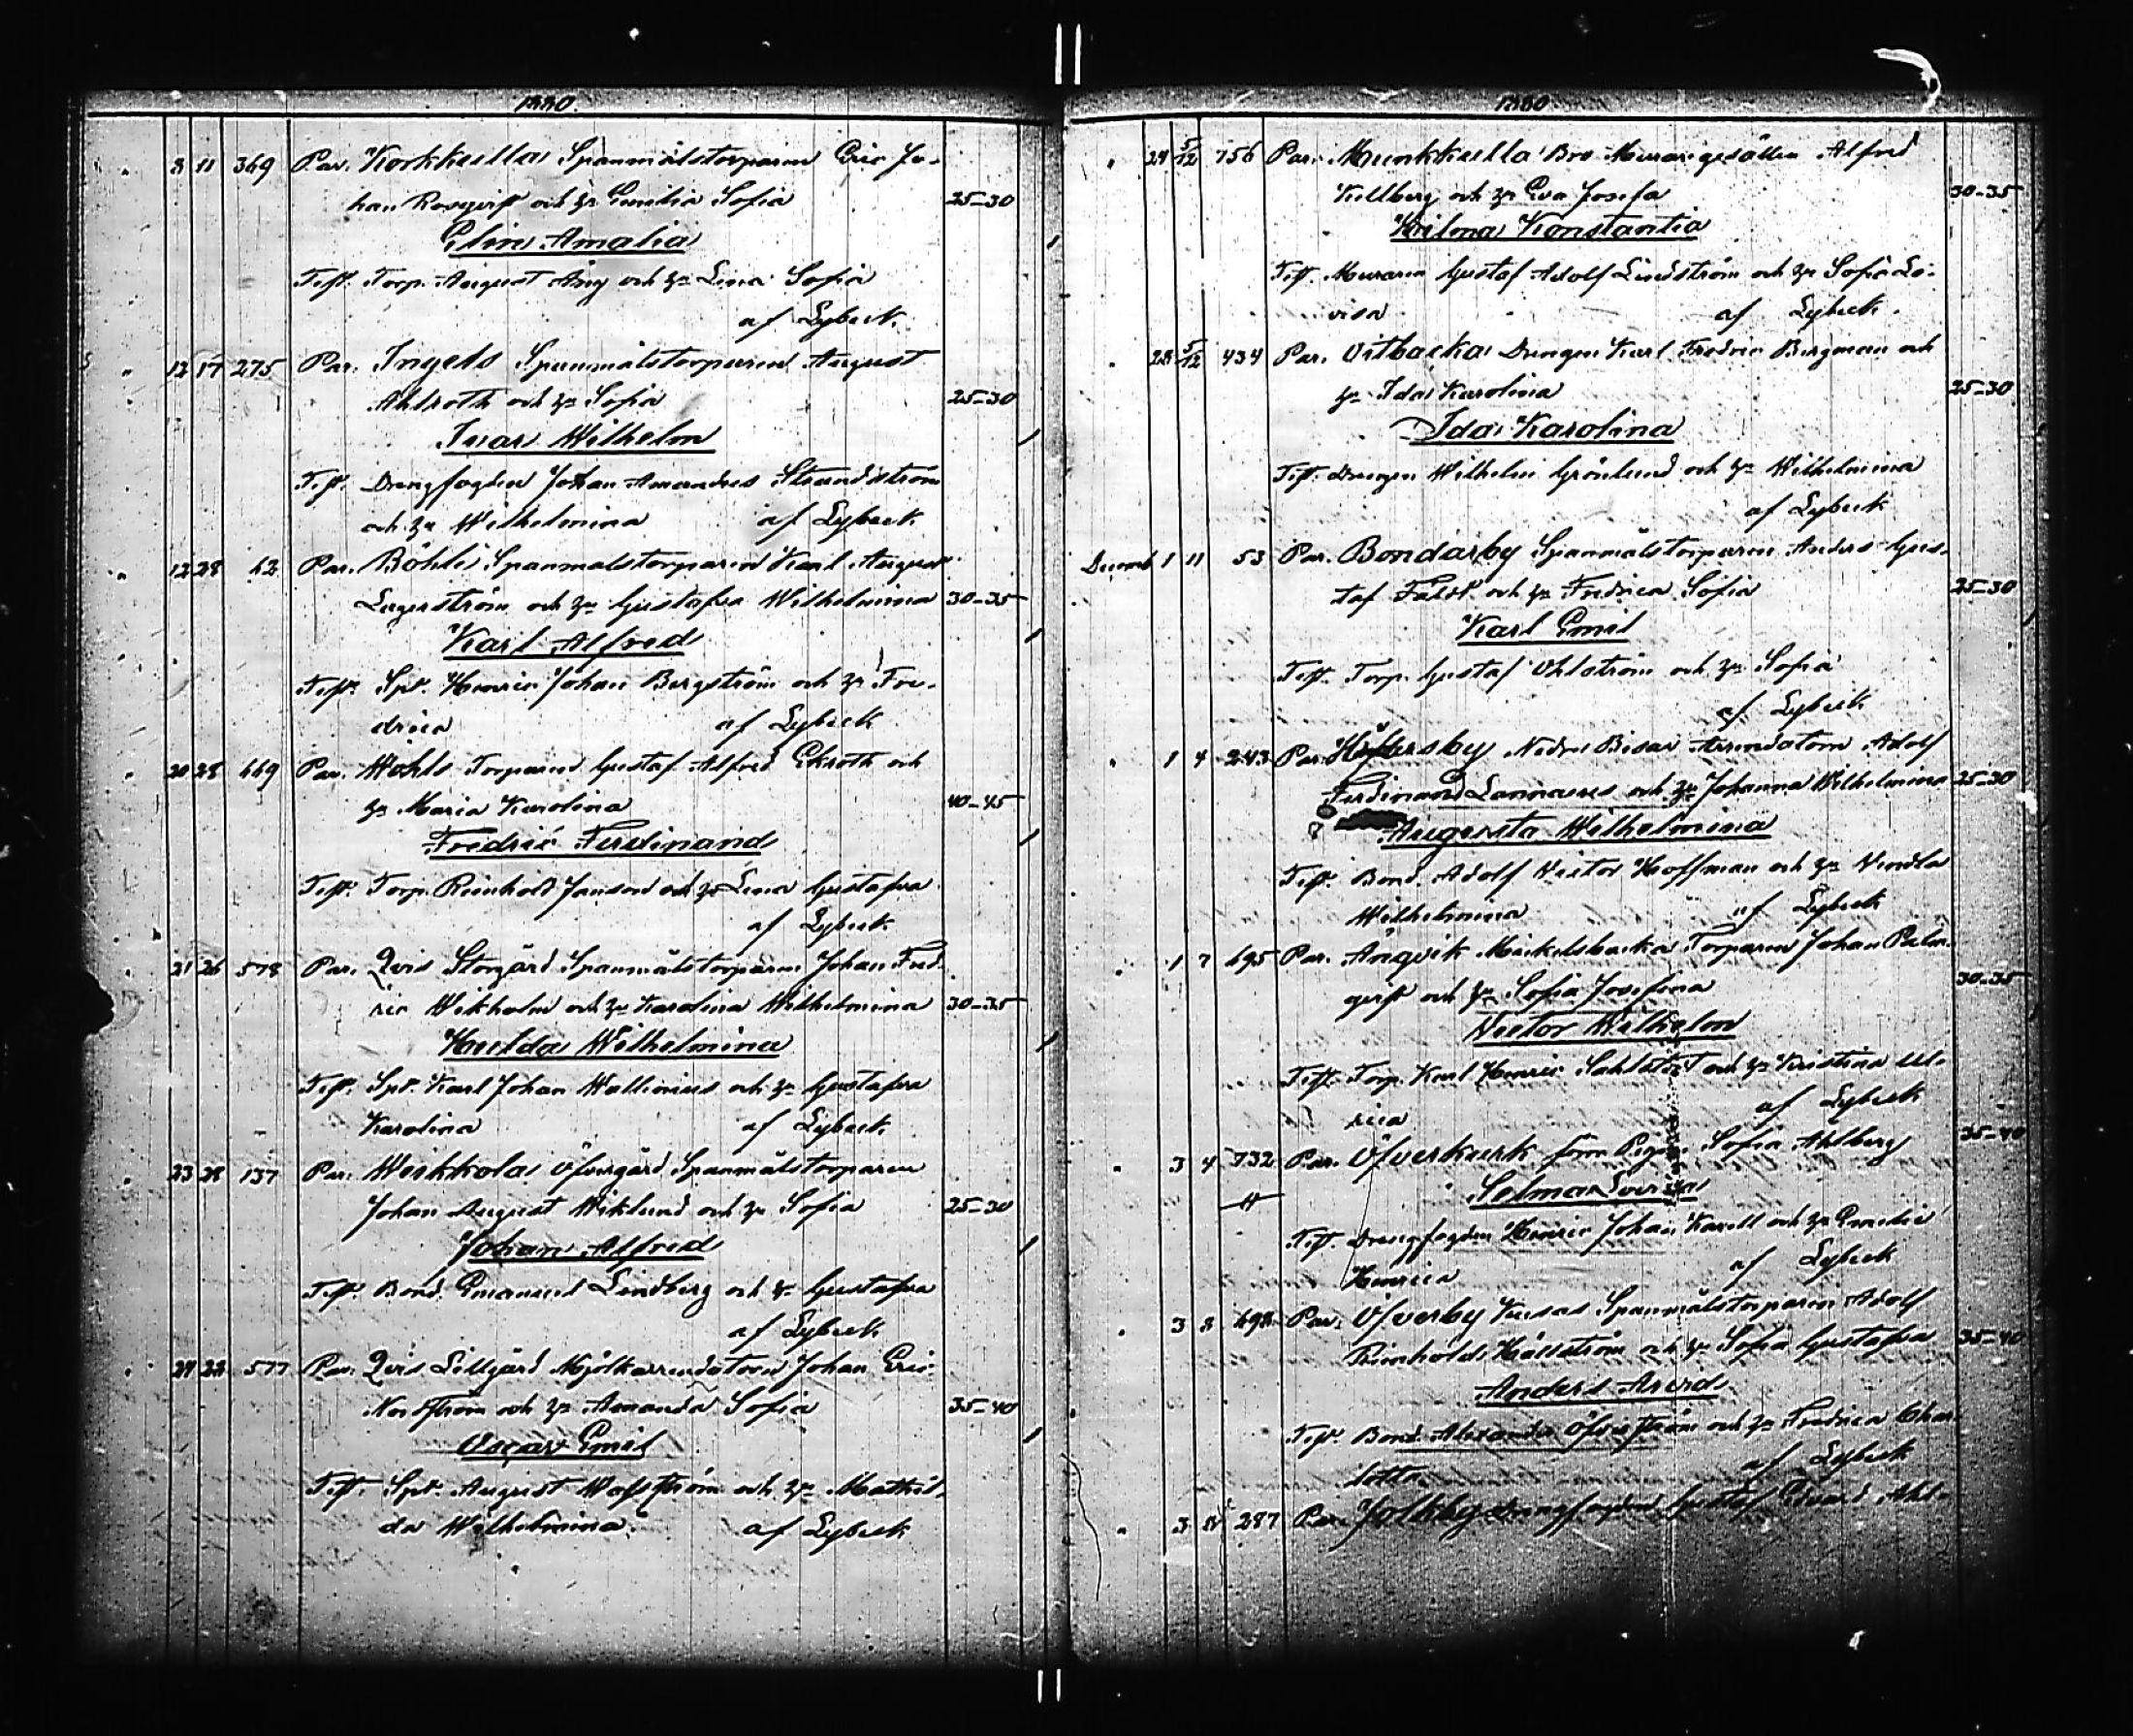 1880.
" 8 11 369 Par. Korkkulla Spanmålstorparen Eric Jo-
han Rosqvist och h:u Emilia Sofia 25-30
Elin Amalia
Test. Torp. August Äng och h:u Lena Sofia
af Lybeck.
" 12 17 275 Par. Ingels Spanmålstorparen August
Ahlroth och h:u Sofia 25-30
Ivar Wilhelm
Test. Drengfogden Johan Amandus Strandström
och h:u Wilhelmina af Lybeck
" 12 28 62 Par. Böhle Spanmålstorparen Karl August
Lagerström och h:u Gustafva Wilhelmina 30-35
Karl Alfred
Test. Spt. Henric Johan Bergström och h:u Fre-
drica af Lybeck
" 20 28 669 Par. Wohls Torparen Gustaf Alfred Ekroth och
h:u Maria Karolina 40-45
Fredric Ferdinand
Test. Torp. Reinhold Janson och h:u Lena Gustafva
af Lybeck
" 21 26 578 Par. Qvis Storgård Spanmålstorparen Johan Fred-
ric Wikholm och h:u Karolina Wilhelmina 30-35
Hulda Wilhelmina
Test. Spt. Karl Johan Wallenius och h:u Gustafva
Karolina af Lybeck
" 23 28 137 Par. Weikkola Öfvergård Spanmålstorparen
Johan August Wiklund och h:u Sofia 25-30
Johan Alfred
Test. Bond. Emanuel Lindberg och h:u Gustafva
af Lybeck
" 24 28 577 Par. Qvis Lillgård Mjölkarrendatorn Johan Eric
Nordström och h:u Amanda Sofia 35-40
Oscar Emil
Test. Spt. August Wafström och h:u Mathil-
da Wilhelmina af Lybeck
1880
" 24 5/12 756 Par. Munkkulla Bro Muraregesällen Alfred
Kullberg och h:u Eva Josefa 30-35
Wilma Konstantia
Test. Muraren Gustaf Adolf Lindström och h:u Sofia Lo-
visa af Lybeck.
" 28 5/12 434 Par. Vitbacka Drengen Karl Fredric Bergman och
h:u Ida Karolina 25-30
Ida Karolina
Test. Drengen Wilhelm Grönlund och h:u Wilhelmina
af Lybeck
Decemb 1 11 53 Par. Bondarby Spanmålstorparen Anders Gus-
taf Fäldt och h:u Fredrica Sofia 25-30
Karl Emil
Test. Torp. Gustaf Ohlström och h:u Sofia
af Lybeck
" 1 4 243 Par. Nedre Arrendatorn Adolf
Ferdinand och h:u Johanna Wilhelmina 25-30
Augusta Wilhelmina
Test. Bond. Adolf Victor Hoffman och h:u Vendla
Wilhelmina af Lybeck
" 1 7 695 Par. Ängvik Mickelsbacka Torparen Johan Palm-
qvist och h:u Sofia Josefina 30-35
Victor Wilhelm
Test. Torp. Karl Henric Sahlstedt och h:u Kristina Ul-
rica af Lybeck
" 3 4 732 Par. Öfverkurk Pigan Sofia Ahlberg 35-40
Selma Lovisa
Test. Drengfogden Henric Johan Karell och h:u Emelie
Henrica af Lybeck
" 3 8 698 Par. Öfverby Kusas Spanmålstorparen Adolf
Reinhold Hällström och h:u Sofia Gustafva 35-40
Anders Arvid
Test. Bond. Alexander Öfverström och h:u Fredrica Char-
lotta af Lybeck
" 3 287 Par. Jolkby Drengfogden Gustaf Edvard Ahl-